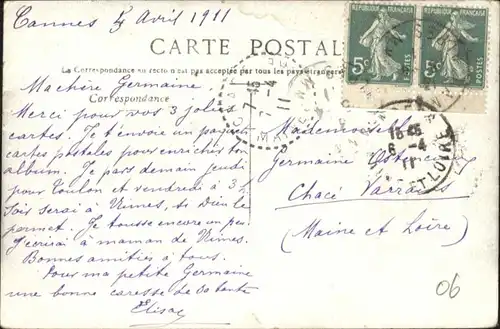 Cannes 4 Avril 1911
CARTE POSTALE
La Correspondance au recto n'est pas acceptée par tous les pays étrangers
Correspondance
RÉPUBLIQUE FRANÇAISE
5c
POSTES
RÉPUBLIQUE FRANÇAISE
5c
POSTES
Ma chère Germaine
Merci pour vos 3 jolies
cartes. Je t'envoie un paquet
cartes postales pour enrichir ton
album. Je pars demain jeudi
pour Toulon et vendredi à 3 h
soir serai à Nimes, si Dieu le
permet. Je tousse encore un peu
J'écrirai à maman de Nimes.
Bonnes amitiés à tous.
Pour ma petite Germaine
une bonne caresse de sa tante
Elisa
Mademoiselle
Germaine
Chacé Varrains
(Maine et Loire)
7 -4
11
18 45
6 -4
11
LOIRE
06